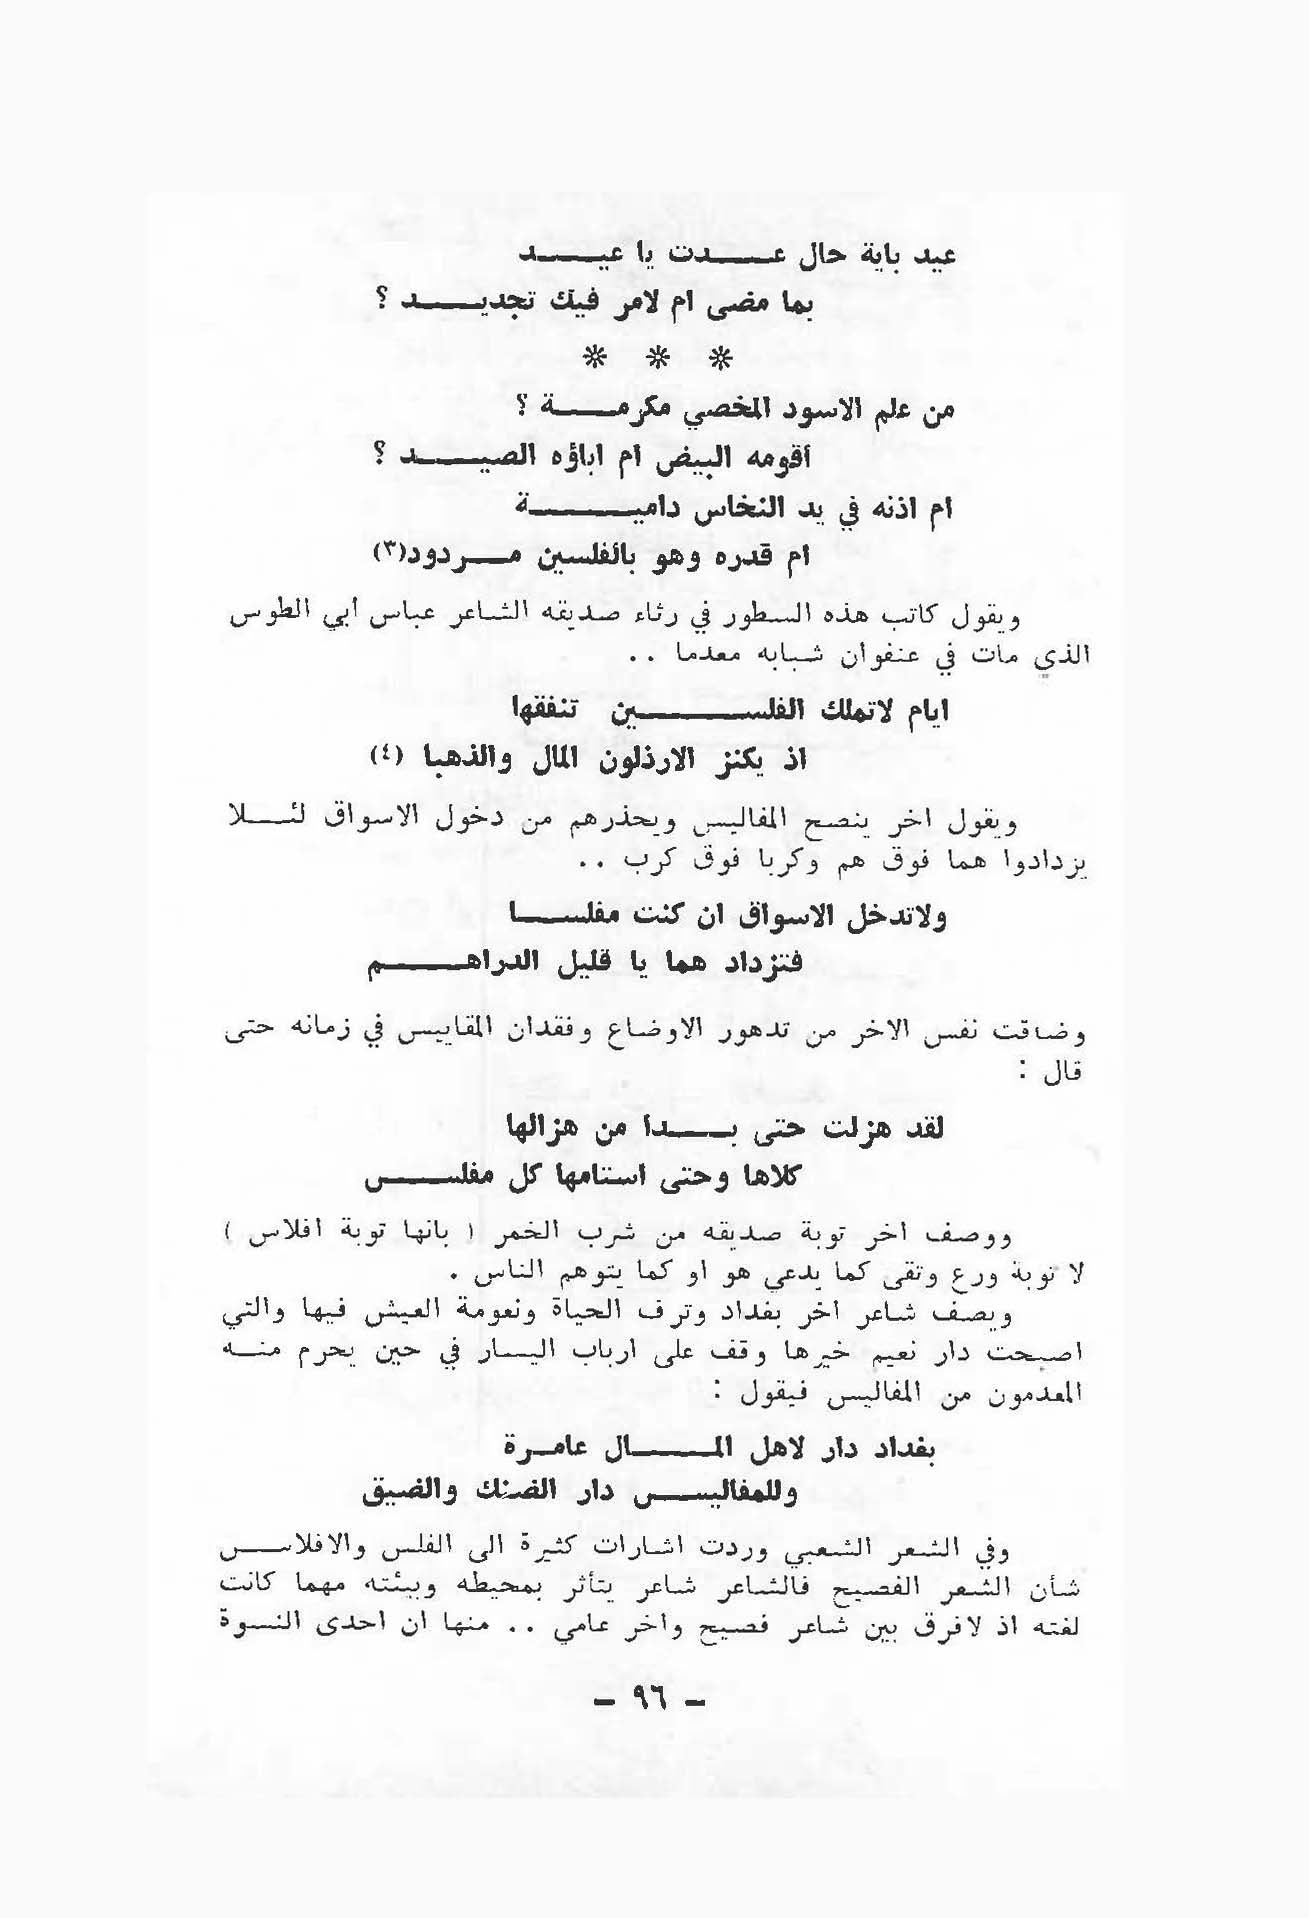 عيد باية حال عدت يا عيد
بما مضى ام لامر فيك تجديد ؟
* * *
من علم الاسود المخصي مكرمة ؟
أقومه البيض ام اباؤه الصيد ؟
ام اذنه في يد النخاس دامية
ام قدره وهو بالفلسين مردود(٣)
ويقول كاتب هذه السطور في رثاء صديقه الشاعر عباس أبي الطوس
الذي مات في عنفوان شبابه معدما . .
ايام لاتملك الفلسين تنفقها
اذ يكنز الارذلون المال والذهبا (٤)
ويقول اخر ينصح المفاليس ويحذرهم من دخول الاسواق لئلا
يزدادوا هما فوق هم وكربا فوق كرب . .
ولاتدخل الاسواق ان كنت مفلسا
فتزداد هما يا قليل الدراهم
وضاقت نفس الاخر من تدهور الاوضاع وفقدان المقاييس في زمانه حتى
قال :
لقد هزلت حتى بدا من هزالها
كلاها وحتى استامها كل مفلس
ووصف اخر توبة صديقه من شرب الخمر ( بانها توبة افلاس )
لا توبة ورع وتقى كما يدعي هو او كما يتوهم الناس .
ويصف شاعر اخر بغداد وترف الحياة ونعومة العيش فيها والتي
اصبحت دار نعيم خيرها وقف على ارباب اليسار في حين يحرم منه
المعدمون من المفاليس فيقول :
بغداد دار لاهل المال عامرة
وللمفاليس دار الضنك والضيق
وفي الشعر الشعبي وردت اشارات كثيرة الى الفلس والافلاس
شأن الشعر الفصيح فالشاعر شاعر يتأثر بمحيطه وبيئته مهما كانت
لغته اذ لافرق بين شاعر فصيح واخر عامي . . منها ان احدى النسوة
- ٩٦ -